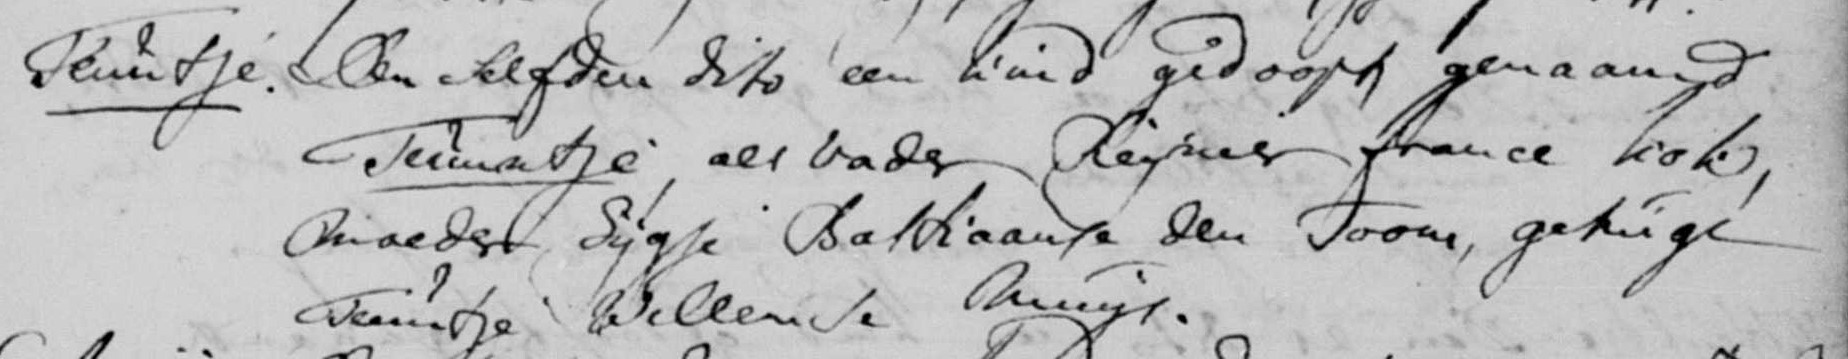 Teuntje. Den selfden dito een kind gedoopt genaamd
Teuntje, als vader Reijnier france kok,
moeder Sijgje Bastiaanse den Toom, getuige
Teuntje Willemse Muijs.